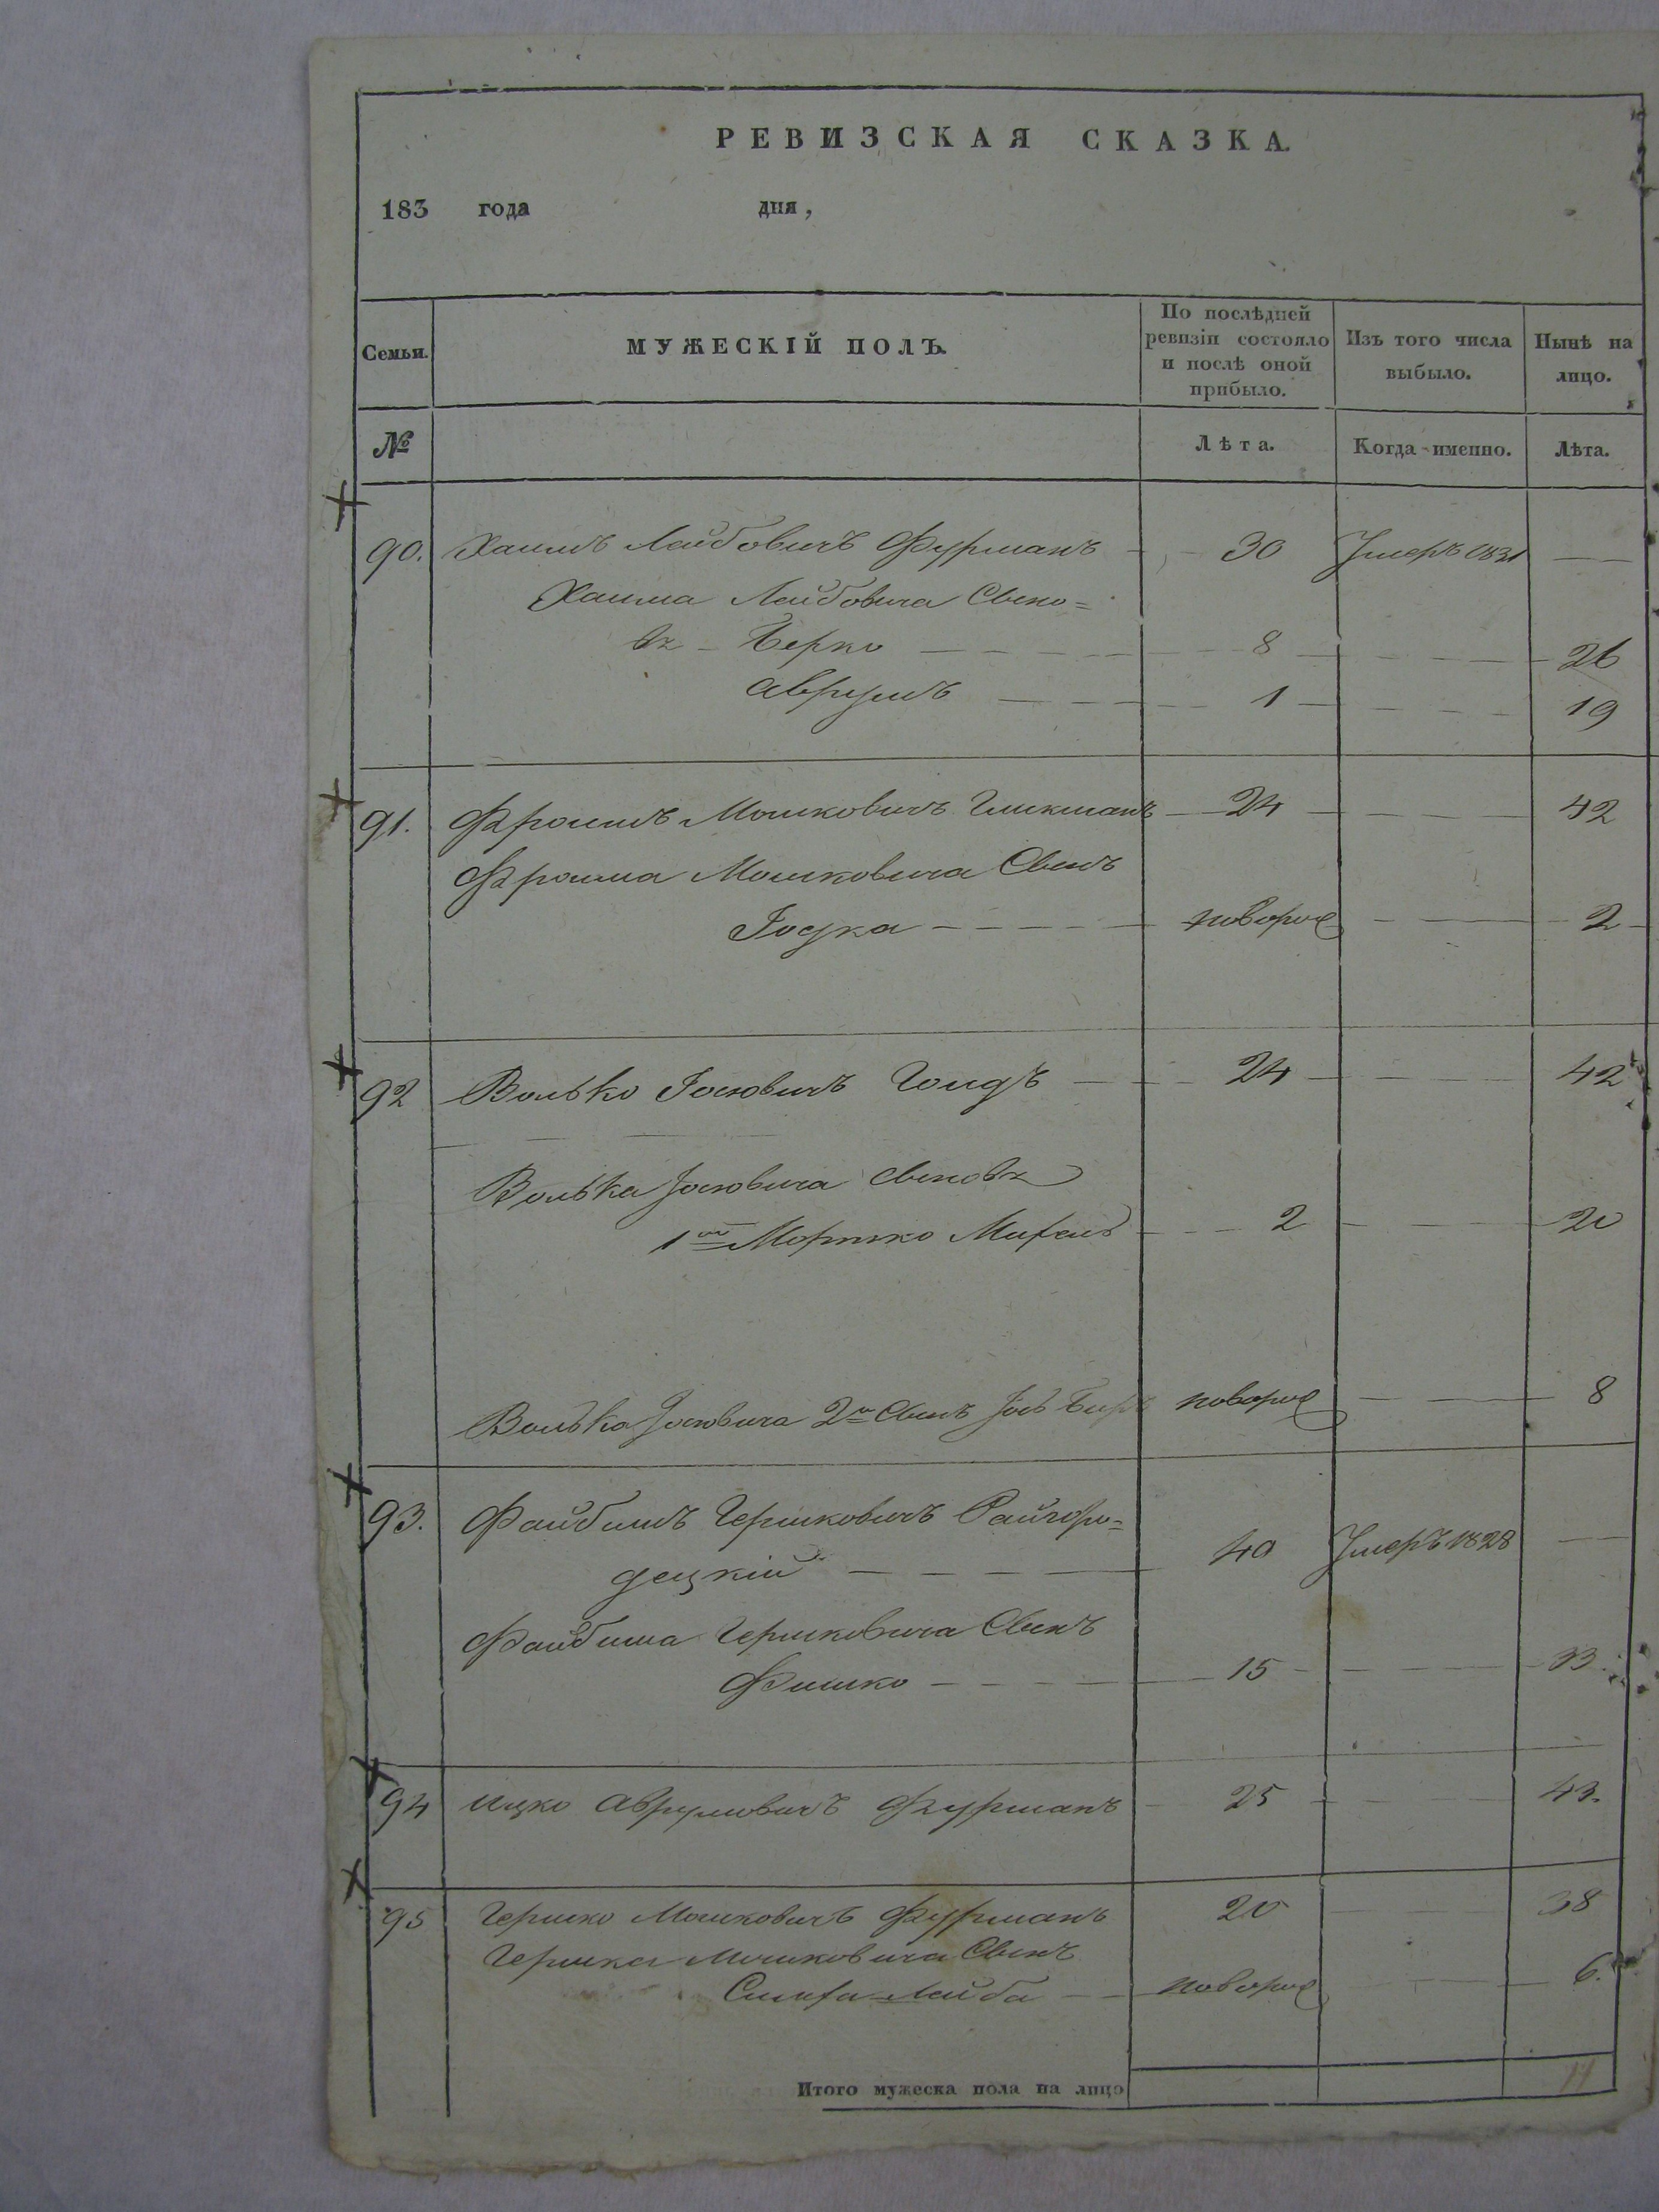 РЕВИЗСКАЯ СКАЗКА.
183 года дня,
Семьи.
МУЖЕСКІЙ ПОЛЪ.
По послѣдней ревизіи состояло и послѣ оной прибыло.
Изъ того числа выбыло.
Нынѣ на лицо.
№
Лѣта.
Когда именно.
Лѣта.
90. Хаимъ Лейбовичъ Фурманъ 30 Умеръ 1831
Хаима Лейбовича Сыно=
вья Берко 8 26
Аврумъ 1 19
91. Фроимъ Мошковичъ Гликманъ 24 42
Фроима Мошковича Сынъ
Іодка новорож 2
92 Волько Іосіовичъ Голдъ 24 42
Волька Іосіовича сыновья
1ой Мортко Михель 2 20
Волька Іосіовича 2й Сынъ Іось новорож 8
93. Файбишъ Гершковичъ Райгоро=
децкій 40 Умеръ 1828
Файбиша Гершковича Сынъ
Фишко 15 33
94 Ицко Аврумовичъ Фурманъ 25 43.
95 Гершко Мошковичъ Фурманъ 20 38
Гершка Мошковича Сынъ
Симха Лейба новорож 6.
Итого мужеска пола на лицо 11